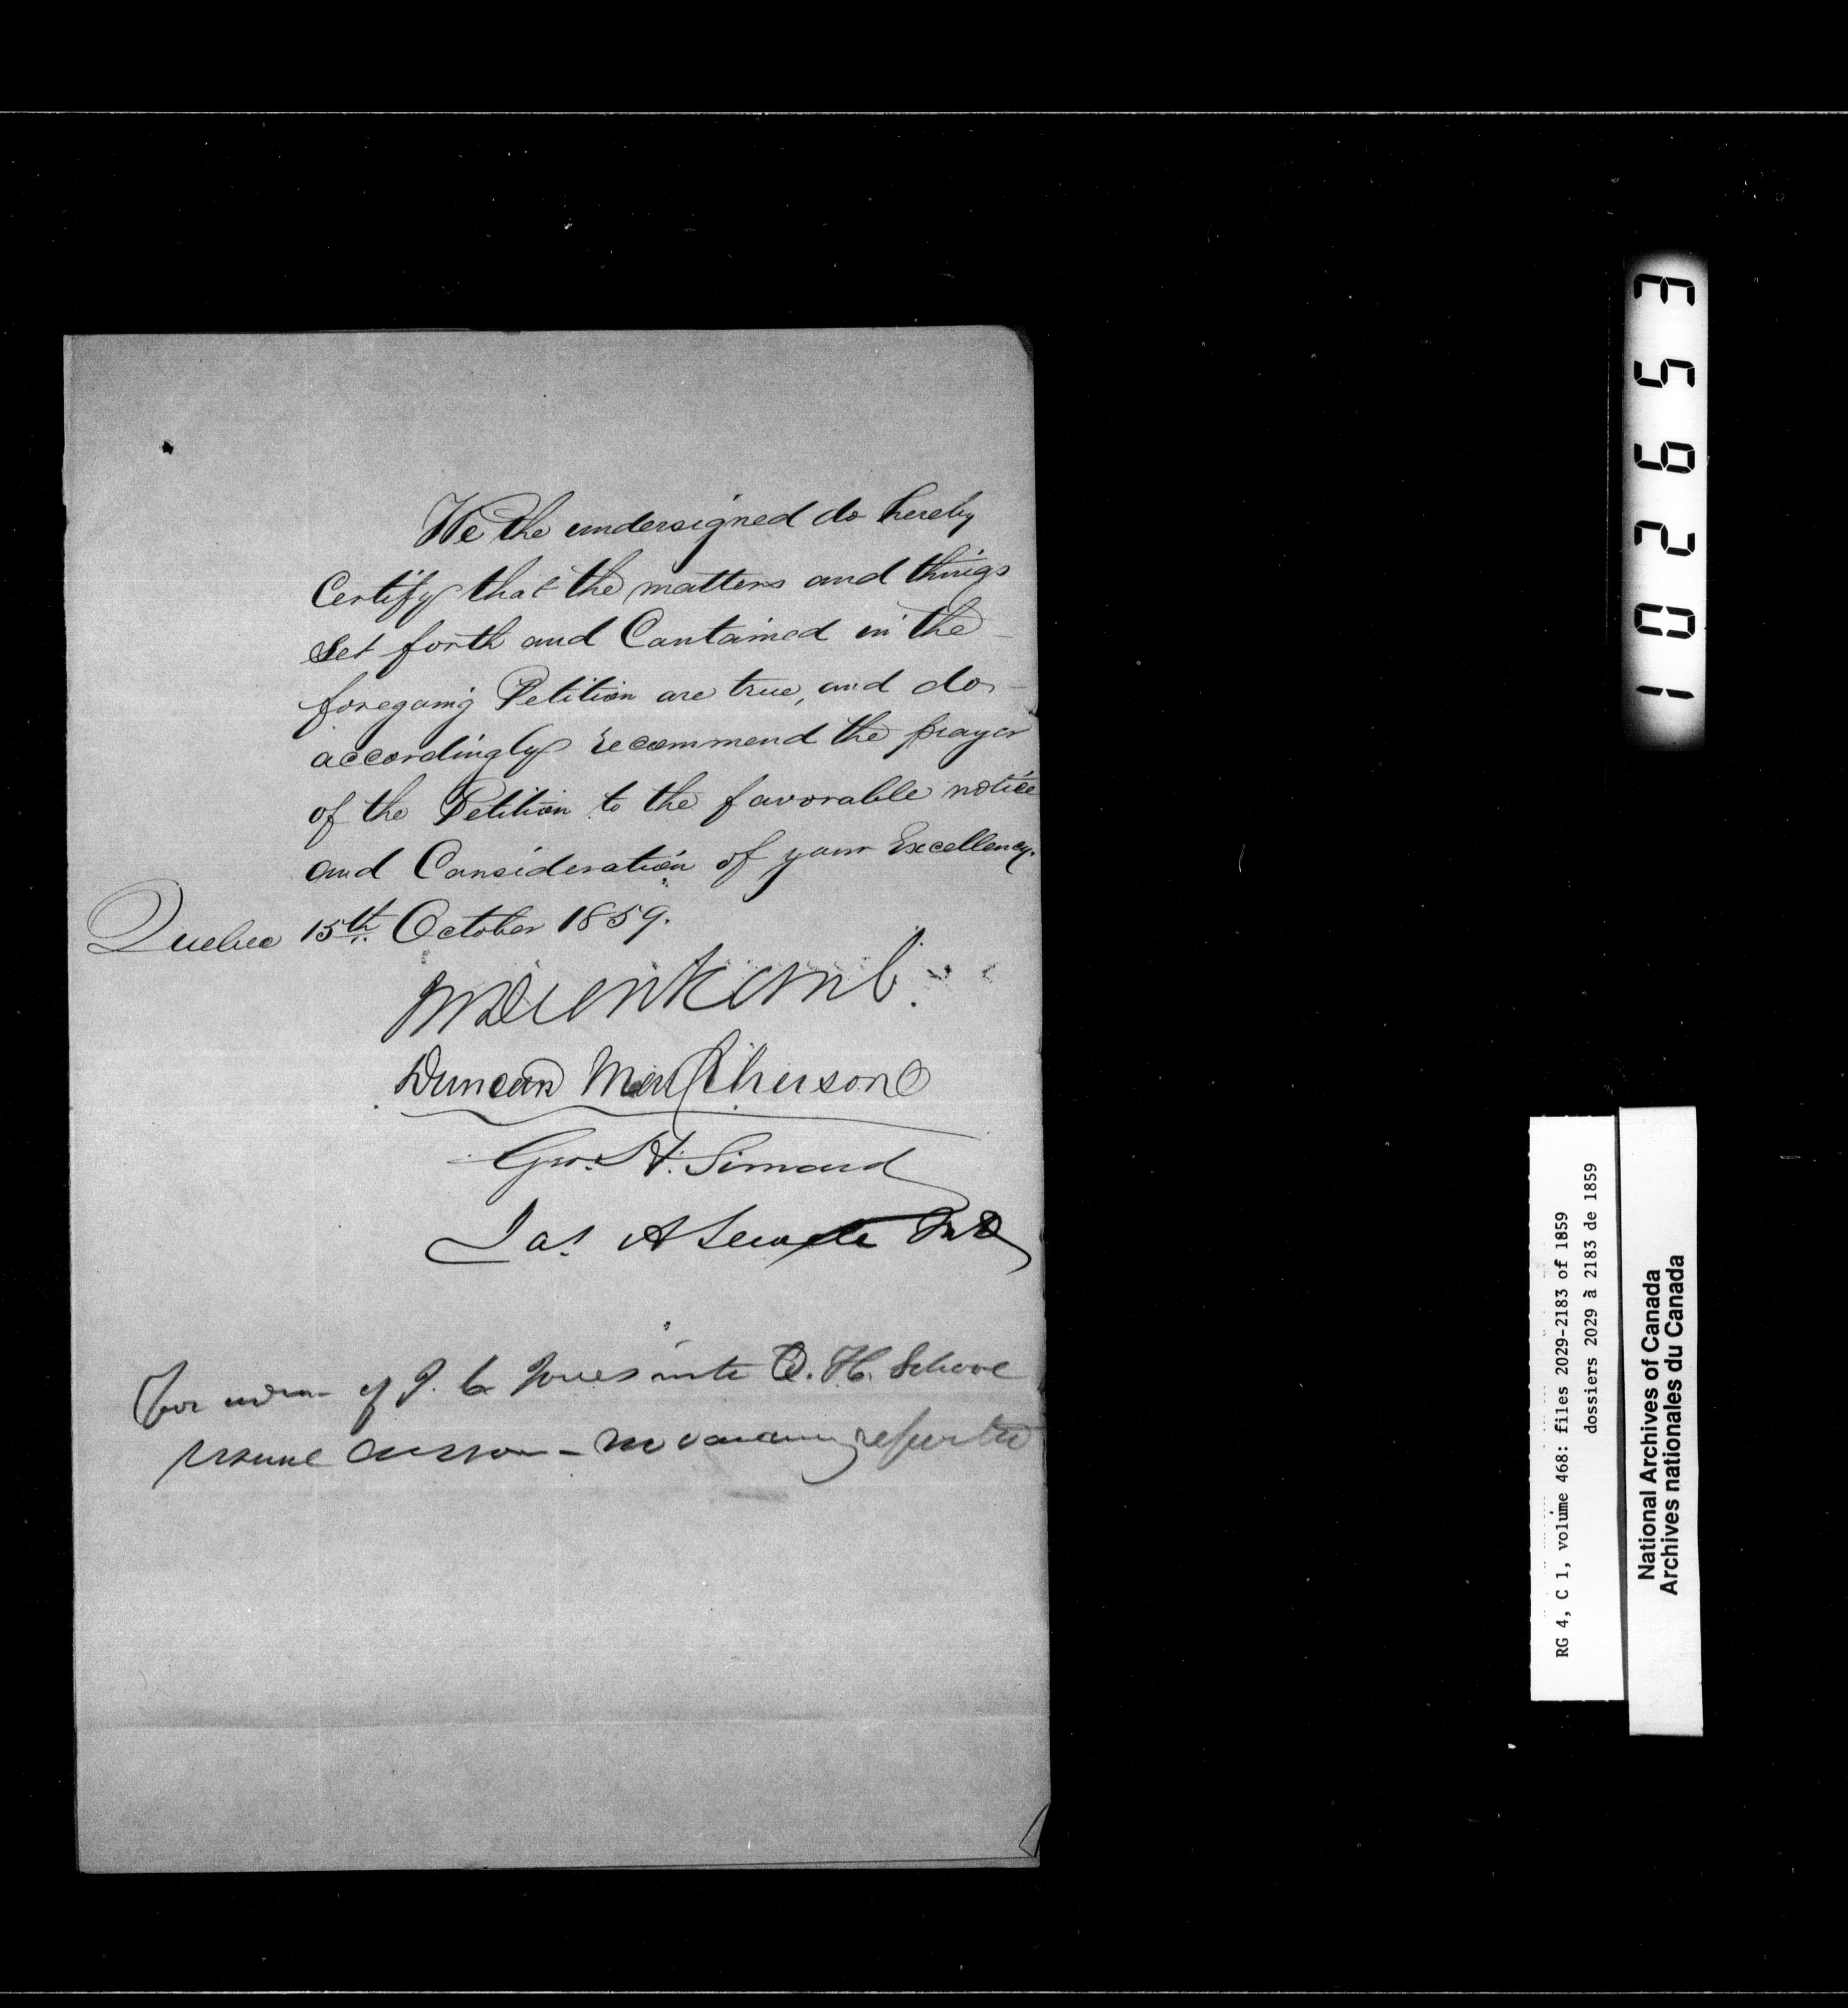 We the undersigned do hereby
Certify that the matters and things
Set forth and Contained in the
foregoing Petition are true, and do
accordingly recommend the prayer
of the Petition to the favorable notice
and Consideration of your Excellency.
Quebec 15th October 1859.
Duncan MacPherson
Geo. H. Simard
Jas A Sewell MD
For adm of J. C. Jones into D. H. School
usual answer - no vacancy reported
102653
RG 4, C 1, volume 468: files 2029-2183 of 1859
dossiers 2029 à 2183 de 1859
National Archives of Canada
Archives nationales du Canada